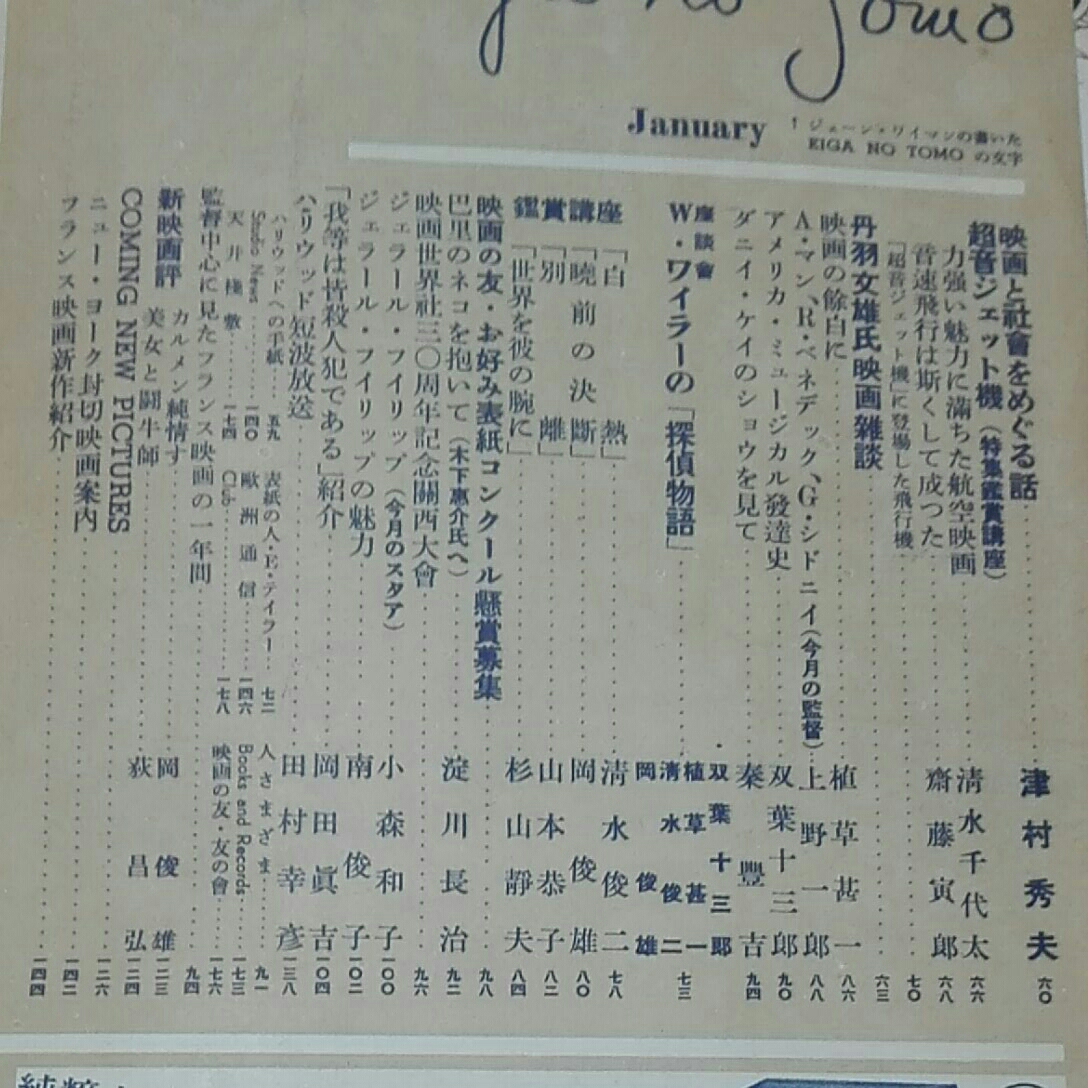 no Tomo
January
↑ジェーン・ワイマンの書いた
EIGA NO TOMO の文字
映画と社會をめぐる話 津村秀夫 六〇
超音ジェット機(特集鑑賞講座)
力强い魅力に滿ちた航空映画 清水千代太 六六
音速飛行は斯くして成つた 齋藤寅郎 六八
「超音ジェット機」に登場した飛行機 七〇
丹羽文雄氏映画雑談 六三
映画の餘白に 植草甚一 八六
A・マン、R・ベネデック、G・シドニイ(今月の監督) 上野一郎 八八
アメリカ・ミュージカル發達史 双葉十三郎 九〇
ダニイ・ケイのショウを見て 秦豐吉 九四
座談會
W・ワイラーの「探偵物語」 双葉十三郎 植草甚一 清水俊二 岡俊雄 七三
鑑賞講座
「白熱」 清水俊二 七八
「曉前の決斷」 岡俊雄 八〇
「別離」 山本恭子 八二
「世界を彼の腕に」 杉山靜夫 八四
映画の友・お好み表紙コンクール懸賞募集 九八
巴里のネコを抱いて(木下惠介氏へ) 淀川長治 九二
映画世界社三〇周年記念關西大會 九六
ジェラール・フイリップ(今月のスタア) 小森和子 一〇〇
ジェラール・フイリップの魅力 南俊子 一〇二
「我等は皆殺人犯である」紹介 岡田眞吉 一〇四
ハリウッド短波放送 田村幸彦 一三八
ハリウッドへの手紙 五九
表紙の人・E・テイラー 七二
人さまざま 九一
Studio News 一四〇
歐洲通信 一四六
Books and Records 一七三
天井棧敷 一七四
Club 一七八
映画の友・友の會 一七六
監督中心に見たフランス映画の一年間 九四
新映画評
カルメン純情す 岡俊雄 一二三
美女と闘牛師 荻昌弘 一二四
COMING NEW PICTURES 一二六
ニュー・ヨーク封切映画案内 一四二
フランス映画新作紹介 一四四